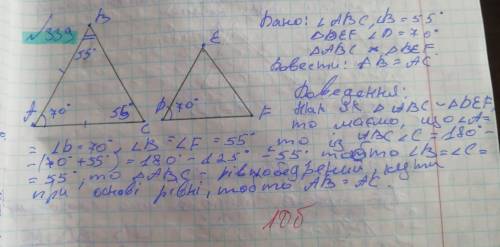 √339
B
55°
A
70°
55°
C
E
D
70°
F
Дано: ∠ABC, ∠B = 55°
△DEF ∠D = 70°
△ABC ~ △DEF.
Довести: AB = AC
Доведення:
Так як △ ABC ~ △DEF
то маємо, що ∠A=
= ∠D = 70°, ∠B = ∠F = 55°, то із ABC ∠C = 180° -
- (70° + 55°) = 180° - 125° - 55° тобто ∠B = ∠C =
= 55°, то △ABC - рівнобедрений, кути
при основі рівні, тобто AB = AC.
10б